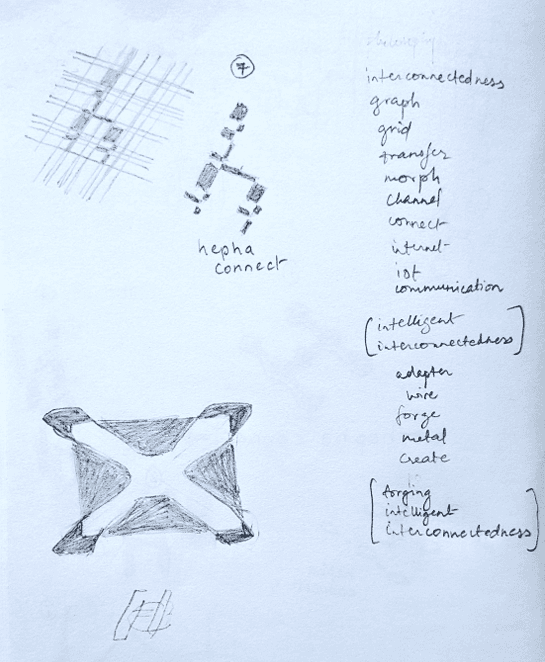 7
hepha
connect
interconnectedness
graph
grid
transfer
morph
channel
connect
internet
iot
communication
[intelligent
interconnectedness]
adapter
wire
forge
metal
create
[forging
intelligent
interconnectedness]